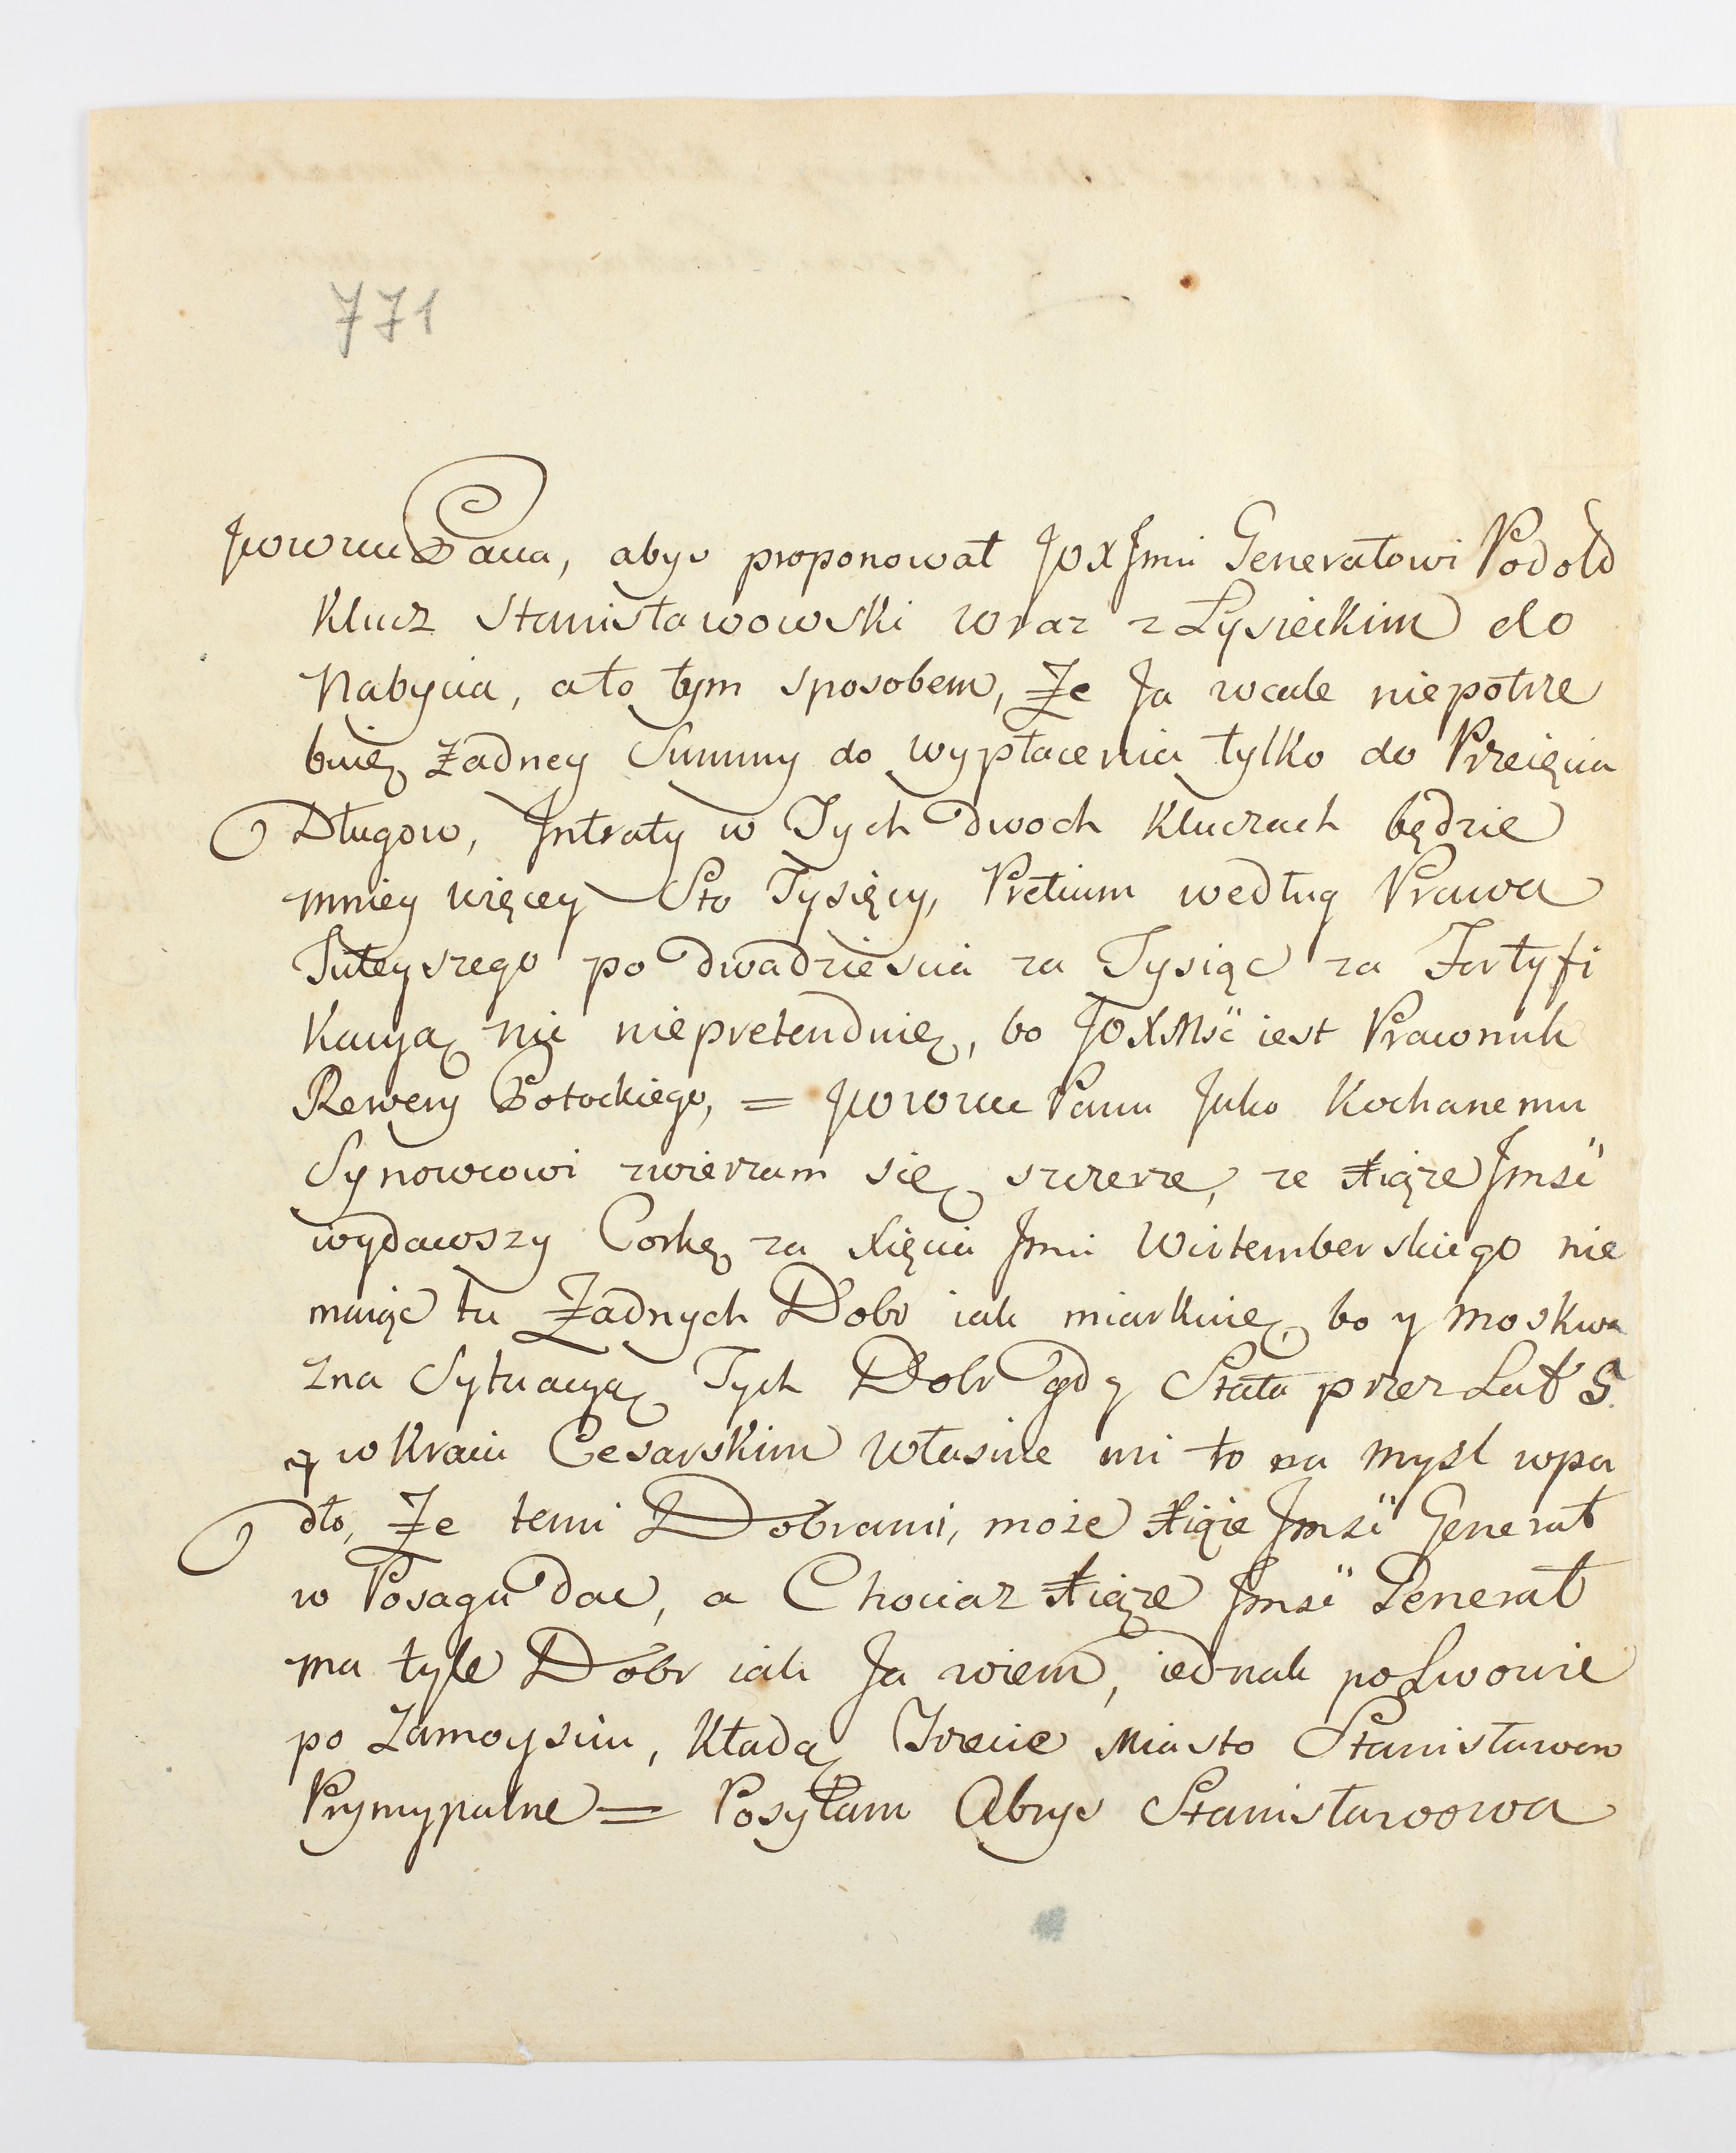 771
JWWMM Pana, abys proponował JOXJmci Generałowi Podold
Klucz Stanisławowski wraz z Łysieckim do
Nabycia, a to tym sposobem, Że Ja wcale niepotrze
buię Żadney Summy do wypłacenia tylko do Przeięcia
Długow, Jntraty w Tych dwoch Kluczach będzie
mniey więcey Sto Tysięcy, Pretium według Prawa
Tuteyszego po dwadziescia za Tysiąc za Fortyfi
Kacyą nic niepretenduię, bo JOXMsć iest Prawnuk
Rewery Potockiego, = JWWMM Panu Jako Kochanemu
Synowcowi zwierzam się szczerze, ze Xiąze Jmsć
wydawszy Corkę za Xięcia Jmci Wirtemberskiego nie
maiąc tu Żadnych Dobr iak miarkuię, bo y Moskwa
zna Sytuacyą Tych Dobr gdy Stała przez Lat 5.
y w Kraiu Cesarskim własnie mi to na mysl wpa
dło, Że temi Dobrami, może Xiąże Jmsć Generał
w Posagu dac, a Chociaz Xiąże Jmsć Generał
ma tyle Dobr iak Ja wiem, iednak po Lwowie
po Zamoysciu, Kładą Trzecie Miasto Stanisławow
Pryncypalne = Posyłam Abrys Stanisławowa